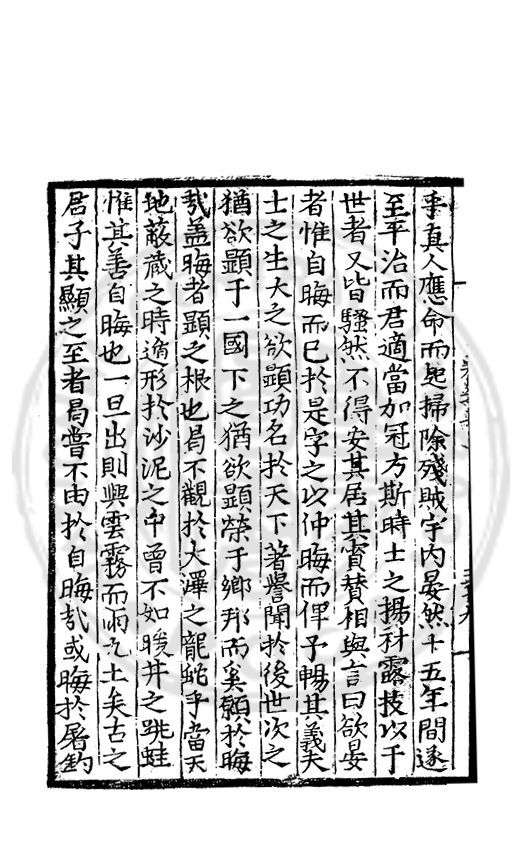 乎真人應命而起掃除殘賊宇内晏然十五年間遂
至平治而君適當加冠方斯時士之揚材露技以于
世者又皆騷然不得安其居其賓賛相與言曰欲晏
者惟自晦而已扵是字之以仲晦而俾予暢其義夫
士之生大之欲顯功名扵天下著譽聞扵後世次之
猶欲顯于一國下之猶欲顯榮于鄉邦而奚願扵晦
㦲盖晦者顯之根也曷不觀扵大澤之龍蛇乎當天
地蔽藏之時遁形扵沙泥之中曾不如晙井之跳蛙
惟其善自晦也一旦出則興雲霧而雨九土矣古之
君子其顯之至者曷嘗不由扵自晦㢤或晦扵屠釣